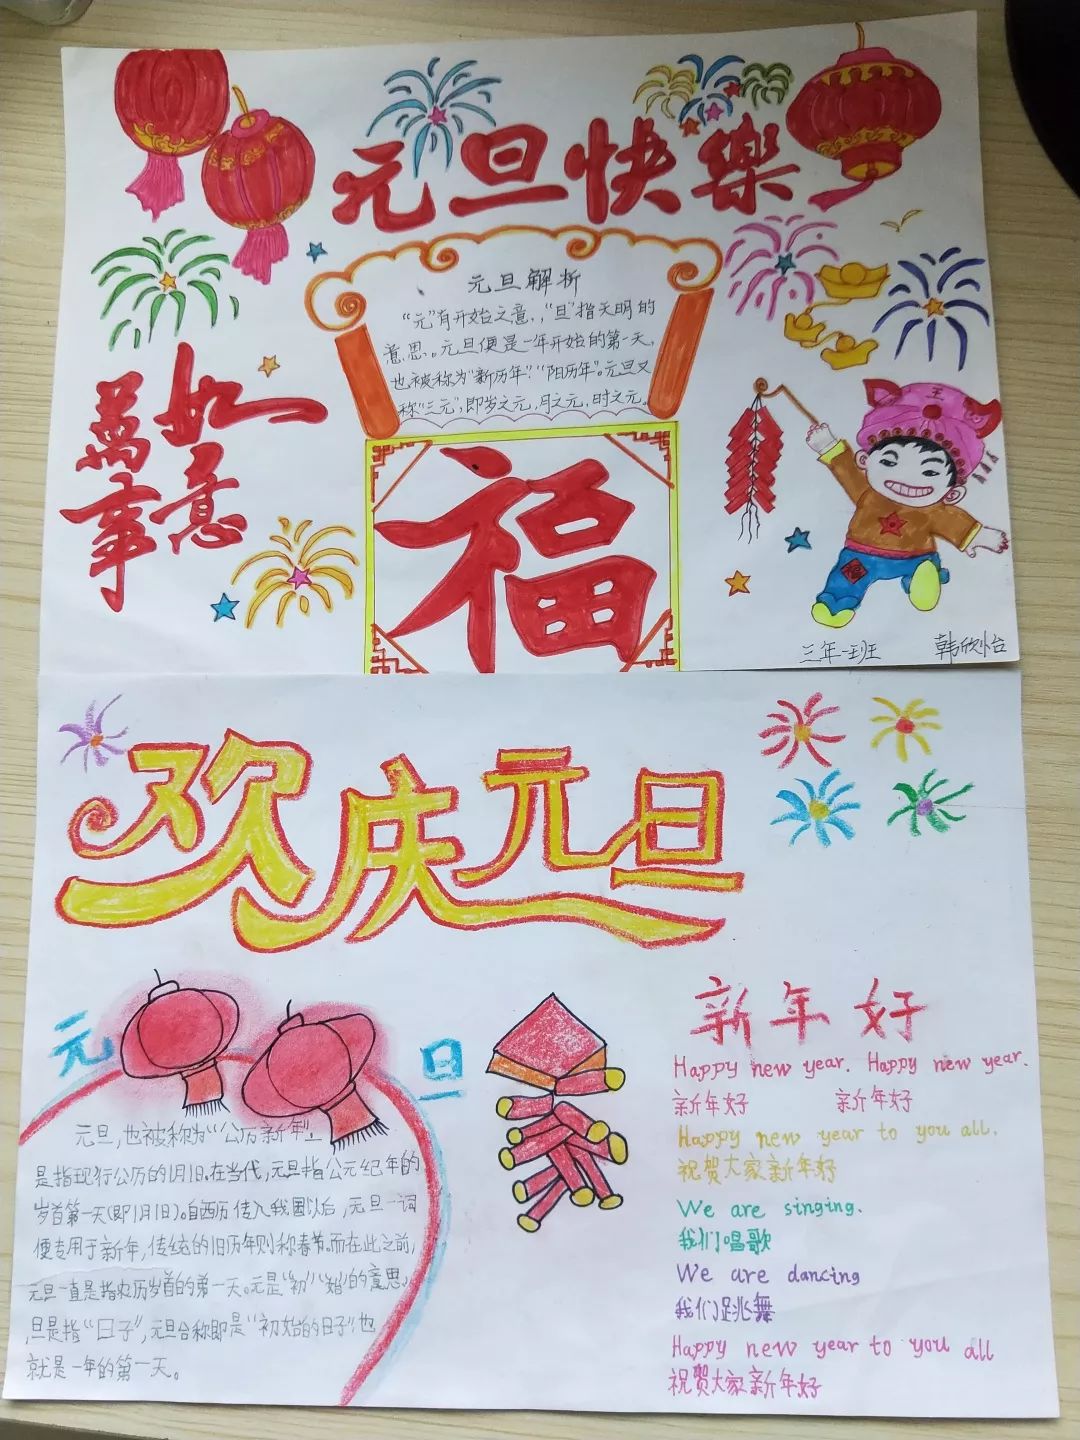 元旦快樂
元旦解析
“元”有开始之意,“旦”指天明的
意思。元旦便是一年开始的第一天,
也被称为“新历年”“阳历年”。元旦又
称“三元”,即岁之元,月之元,时之元。
萬事
如意
福
王
福
三年一班 韩欣怡
欢庆元旦
元旦
元旦,也被称为“公历新年”
是指现行公历的1月1日。在当代,元旦指公元纪年的
岁首第一天(即1月1日)。自西历传入我国以后,元旦一词
便专用于新年,传统的旧历年则称春节。而在此之前,
元旦一直是指农历岁首的第一天。元是“初”“始”的意思,
旦是指“日子”,元旦合称即是“初始的日子”,也
就是一年的第一天。
新年好
Happy new year. Happy new year.
新年好 新年好
Happy new year to you all.
祝贺大家新年好
We are singing.
我们唱歌
We are dancing
我们跳舞
Happy new year to you all
祝贺大家新年好